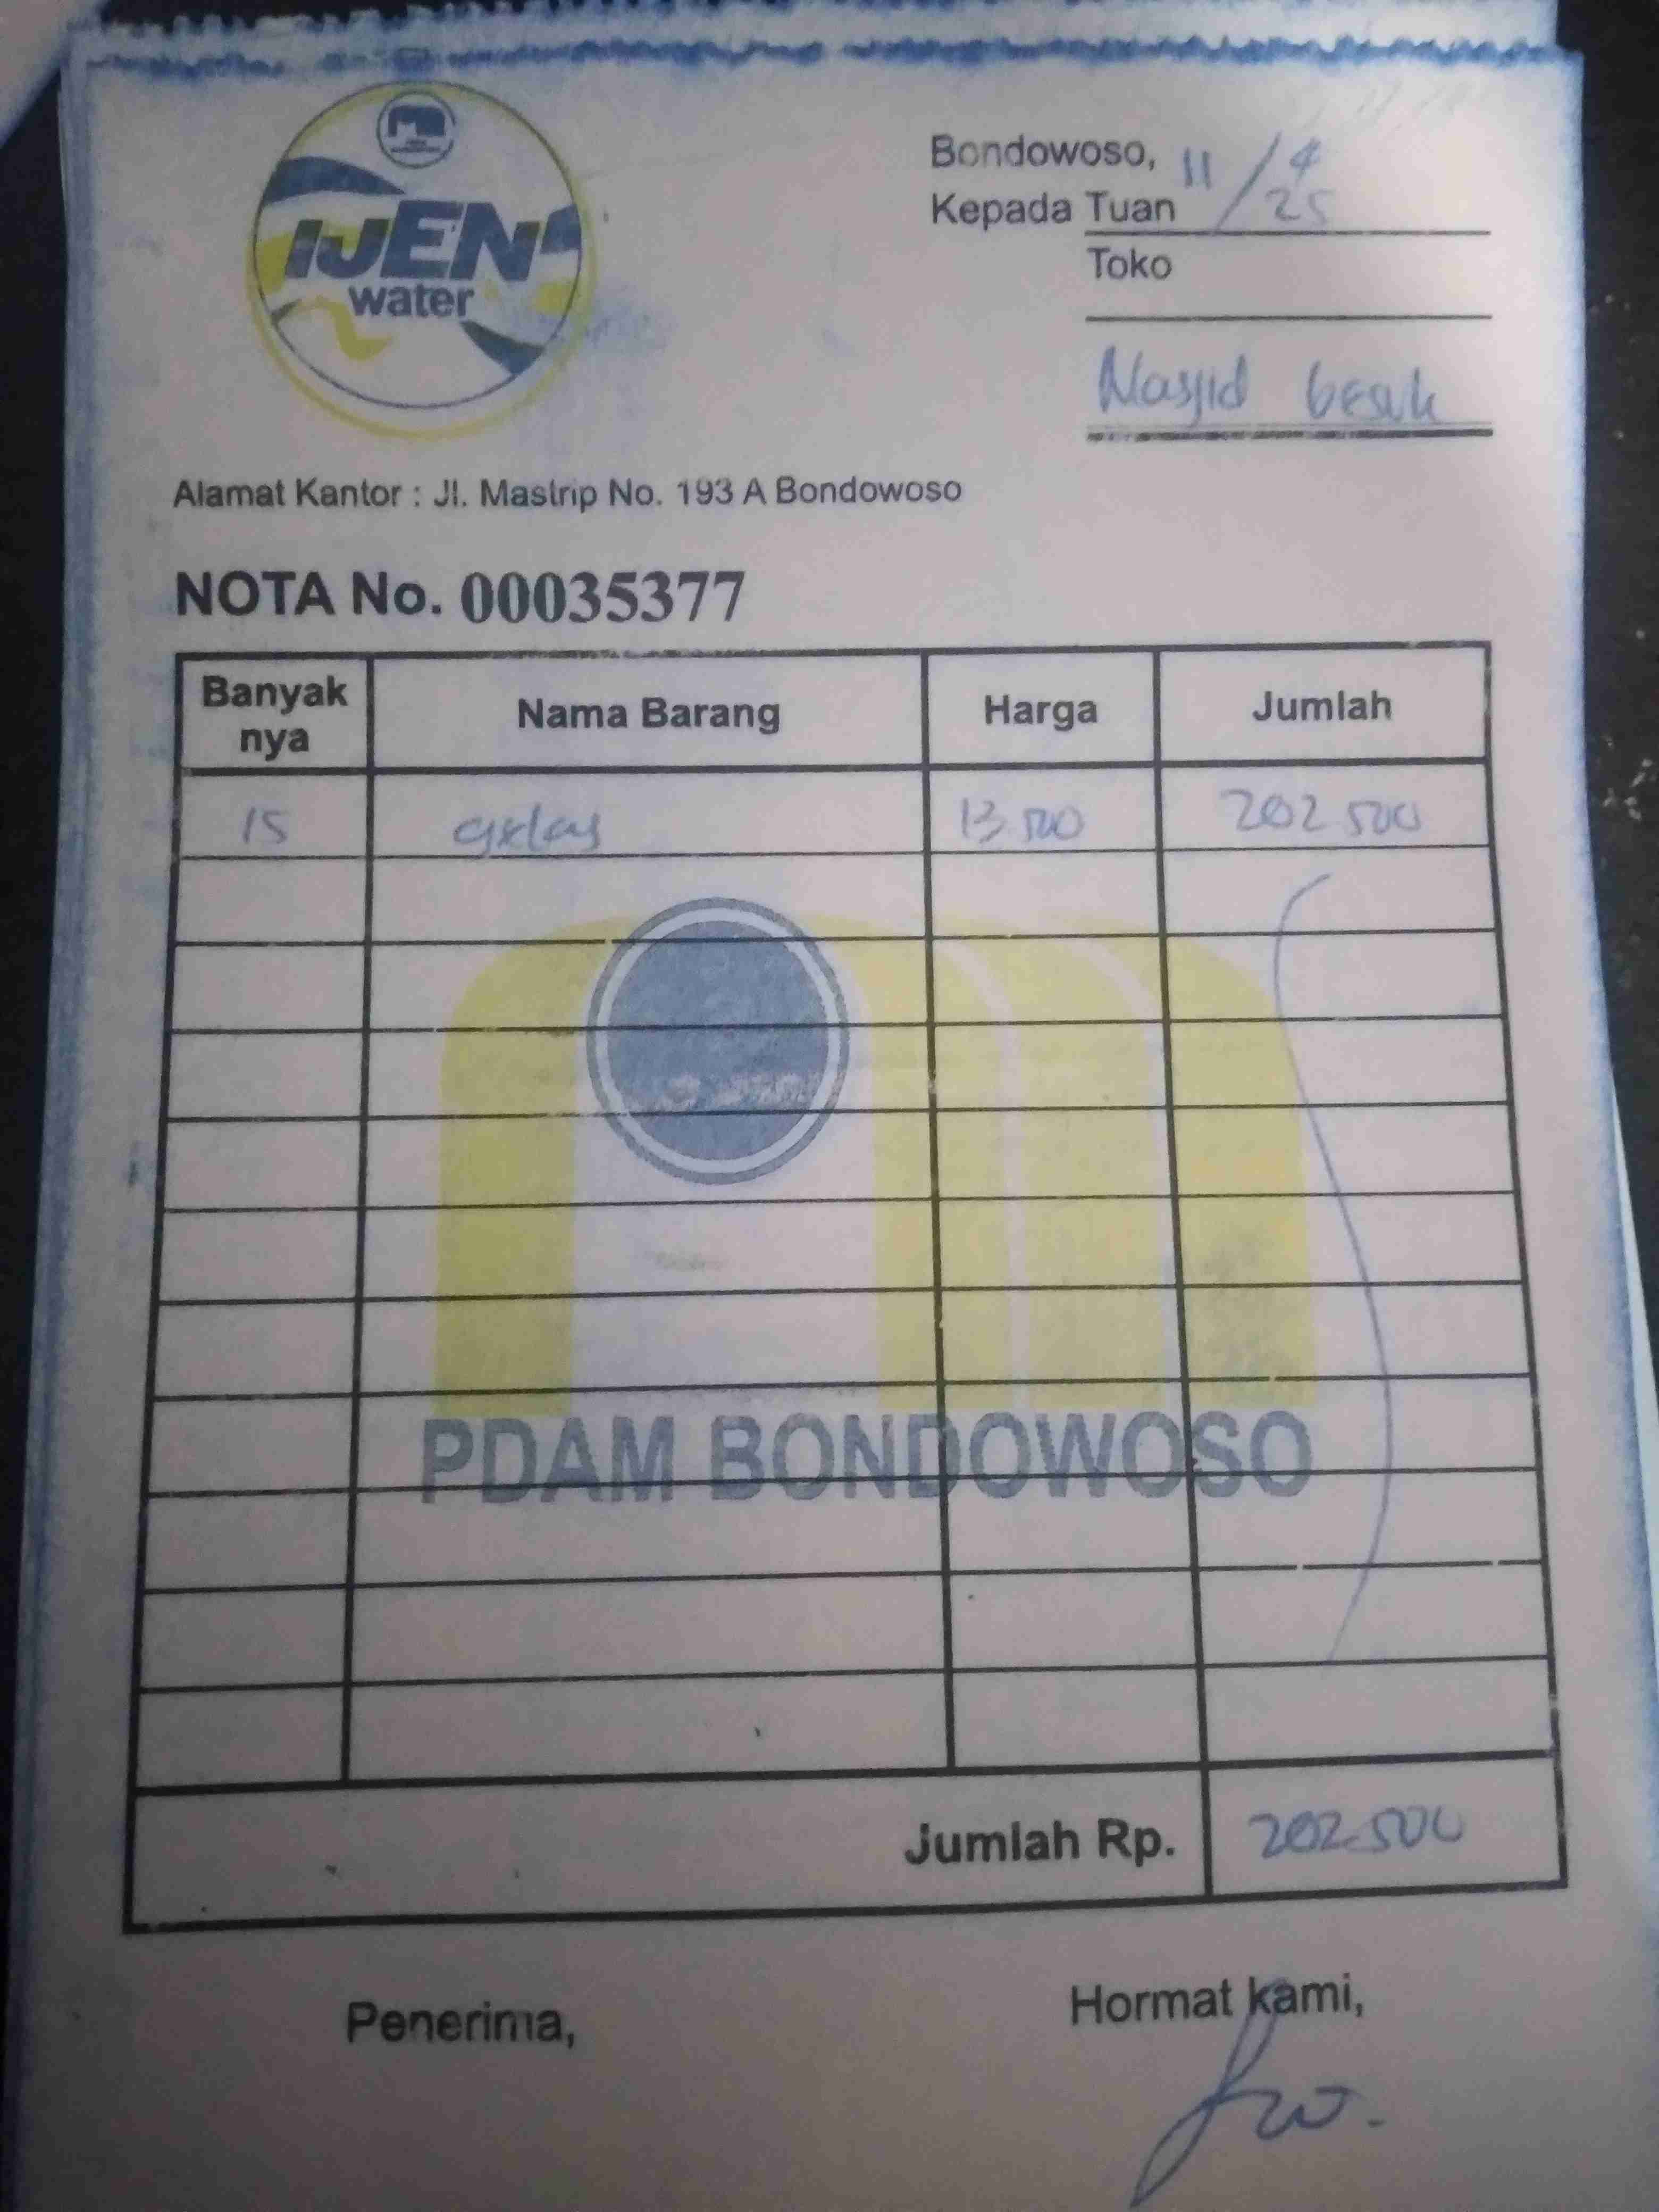 IJEN
water
Bondowoso, 11/4
Kepada Tuan 25
Toko
Masjid besuk
Alamat Kantor : Jl. Mastrip No. 193 A Bondowoso
NOTA No. 00035377
Banyak nya Nama Barang Harga Jumlah
15 gelas 13 500 202 500
PDAM BONDOWOSO
Jumlah Rp. 202.500
Penerima, Hormat kami,